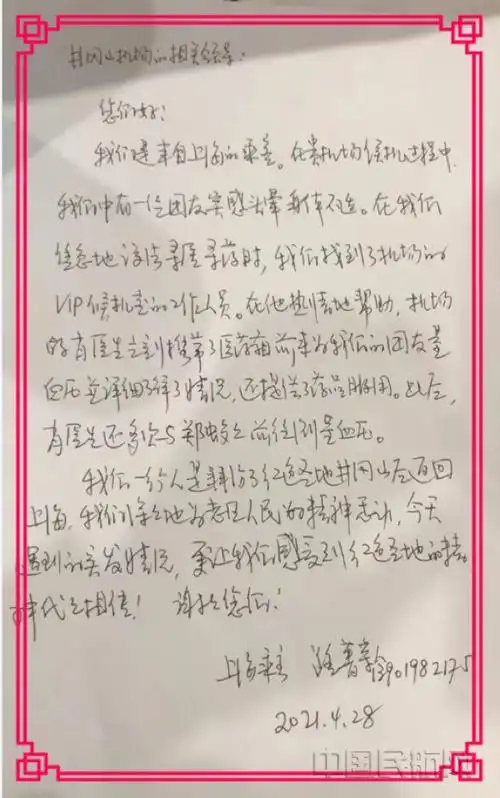 井冈山机场的相关领导:
您们好!
我们是来自上海的乘客。在贵机场候机过程中,
我们中有一位团友突感头晕身体不适。在我们
焦急地设法寻医寻药时,我们找到了机场的
VIP候机室的工作人员。在他热情地帮助,机场
的肖医生立刻携带了医药箱前来为我们的团友量
血压并详细了解了情况,还提供了药品服用。此后,
肖医生还多次与郑 前往测量血压。
我们一行人是拜访了红色圣地井冈山后返回
上海,我们 地为老区人民的精神 ,今天
遇到的突发情况,更让我们感受到红色圣地的精
神代代相传!谢谢您们!
上海乘客
2021.4.28
中国民航网